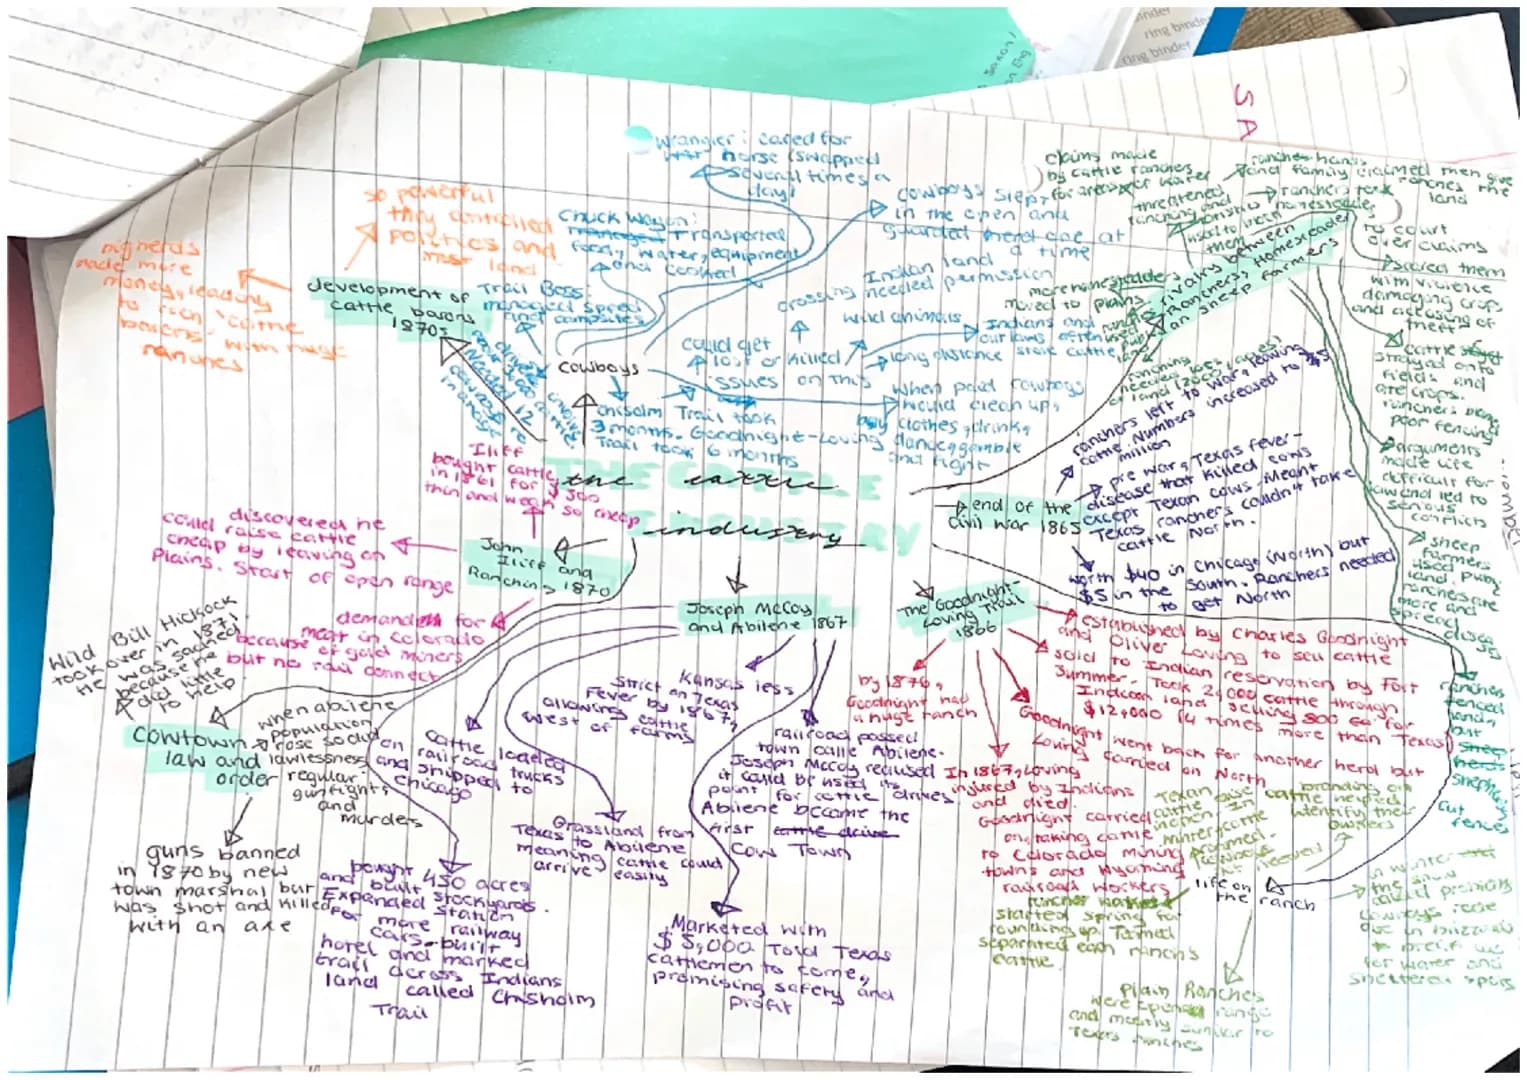 ring binder
ring binder
SA
wrangler: cared for
horse (swapped
several times a
day)
so powerful
they controlled
politics and
most land
big herds
made more
money, leading
to rich "cattle
barons" with huge
ranches
development of
cattle barons
1870s
Chuck Wagon:
Transported
food, water, equipment
and cooked
Trail Boss:
managed
cowboys slept
in the open and
guarded herd one at
a time
crossing Indian land
needed permission
wild animals
could get
lost or killed
Indians and
outlaws often
stole cattle
long distance
issues on this
cowboys
Chisolm Trail took
3 months. Goodnight-Loving
Trail took 6 months
When paid cowboys
would clean up,
buy clothes, drink,
dance, gamble
and fight
claims made
by cattle ranches
for areas
threatened
ranching and
homesteaders
used to
them
ranches hands
and family claimed then give
ranches the
land
ranchers took
homesteaders
to court
over claims
scared them
with violence
damaging crops
and accusing of
theft
rivalry between
Ranchers, Homesteaders
an sheep farmers
more homesteaders
moved to plains
ranching
needed
of land
cattle
strayed onto
fields and
ate crops.
ranchers
poor fencing
arguments
made life
difficult for
and led to
serious
conflicts
sheep
farmers
used public
land.
more and
spread
ranchers
fenced
land,
but
cut
fences
the cattle
industry
end of the
Civil War 1865
ranchers left to war, leaving
cattle. Numbers increased to 5
million
pre war, Texas fever-
disease that killed cows
except Texan cows. Meant
Texas ranchers couldn't take
cattle North.
worth $40 in Chicago (North) but
$5 in the South. Ranchers needed
to get North
Iliff
bought cattle
in 1861 for $500
thin and weak so cheap
discovered he
could raise cattle
cheap by leaving on
Plains. Start of open range
John
Iliff and
Ranching 1870
demand for
meat in Colorado
because of gold miners
but no rail connect
Wild Bill Hickock
took over in 1871.
He was sacked
because he
did little
to help.
Cowtown
law and
order
when abilene
population
rose so did
lawlessness
regular
gunfights
and
murders
guns banned
in 1870 by new
town marshal but
was shot and killed
with an axe
Joseph McCoy
and Abilene 1867
cattle loaded
on railroad trucks
and shipped to
Chicago
Kansas less
strict on Texas
Fever by 1867,
allowing cattle
west of farms
Grassland from
Texas to Abilene
meaning cattle could
arrive easily
railroad passed
town calle Abilene.
Joseph McCoy realised
it could be used as
point for cattle drives
Abilene became the
first cattle drive
Cow Town
bought 450 acres
and built stockyards.
Expanded station
for more railway
cars-built
hotel and marked
trail across Indians
land called Chisholm
Trail
Marketed with
$5,000 Told Texas
cattlemen to come,
promising safety and
profit
The Goodnight-
Loving Trail
1866
established by Charles Goodnight
and Oliver Loving to sell cattle
sold to Indian reservation by Fort
Summer. Took 2,000 cattle through
Indian land selling 800 for
$12,000 (4 times more than Texas)
Goodnight went back for another herd but
Loving carried on North
by 1876,
Goodnight had
a huge ranch
In 1867, Loving
injured by Indians
and died.
Goodnight carried
on, taking cattle
to Colorado mining
towns and Wyoming
railroad workers
branding on
cattle helped
identify the
owners
life on
the ranch
started spring for
rounding up. Termed
separated each ranch's
cattle.
in winter
the snow
caused problems
cowboys rode
out in blizzards
for water and
sheltered spots
Plain Ranches
were opened range
and mostly similar to
Texas ranches